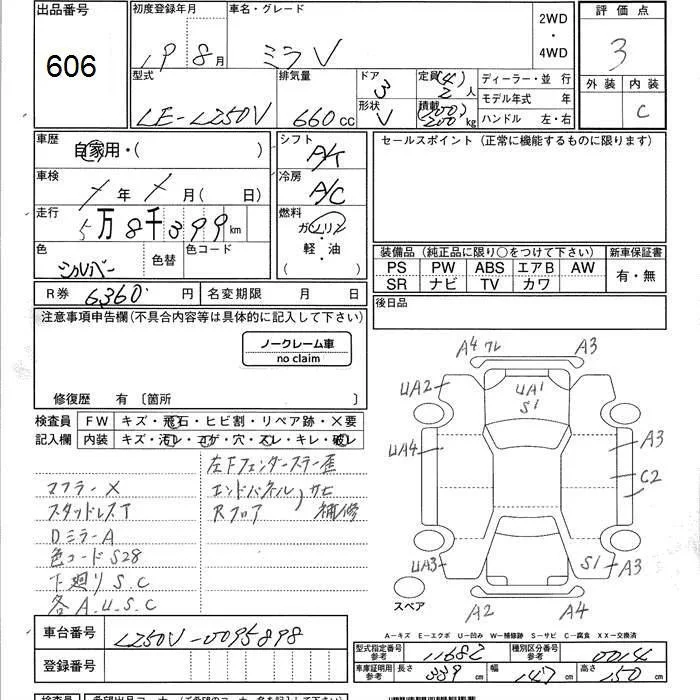 出品番号
606
初度登録年月
19 8月
車名・グレード
ミラV
2WD
・
4WD
評価点
3
外装 内装
C
型式
LE-L250V
排気量
660cc
ドア
3
形状
V
定員(4)
2人
積載(100)
200kg
ディーラー・並行
モデル年式 年
ハンドル 左・右
車歴
自家用・( )
シフト
A/T
車検
年 月( 日)
冷房
A/C
走行
5万8千399km
燃料
ガソリン
軽・油
( )
色
シルバー
色替
色コード
R券 6360円
名変期限 月 日
セールスポイント(正常に機能するものに限ります)
装備品(純正品に限り○をつけて下さい)
新車保証書
PS PW ABS エアB AW
SR ナビ TV カワ
有・無
後日品
注意事項申告欄(不具合内容等は具体的に記入して下さい)
ノークレーム車
no claim
修復歴 有〔箇所 〕
検査員
記入欄
FW キズ・飛石・ヒビ割・リペア跡・×要
内装 キズ・汚レ・コゲ・穴・スレ・キレ・破レ
左Fフェンダーステー歪
マフラーX
エンドパネル
サビ
スタッドレスT
Rフロア
補修
DミラーA
色コードS28
下廻りS.C
各A.U.S.C
A4 ワレ
A3
UA2
UA1
S1
UA4
A3
C2
UA3
S1
A3
スペア
A2
A4
A-キズ E-エクボ U-凹み W-補修跡 S-サビ C-腐食 XX-交換済
車台番号
L250V-0095898
登録番号
型式指定番号
参考
11682
種別区分番号
参考
0014
車庫証明用
参考
長さ
339cm
幅
147cm
高さ
150cm